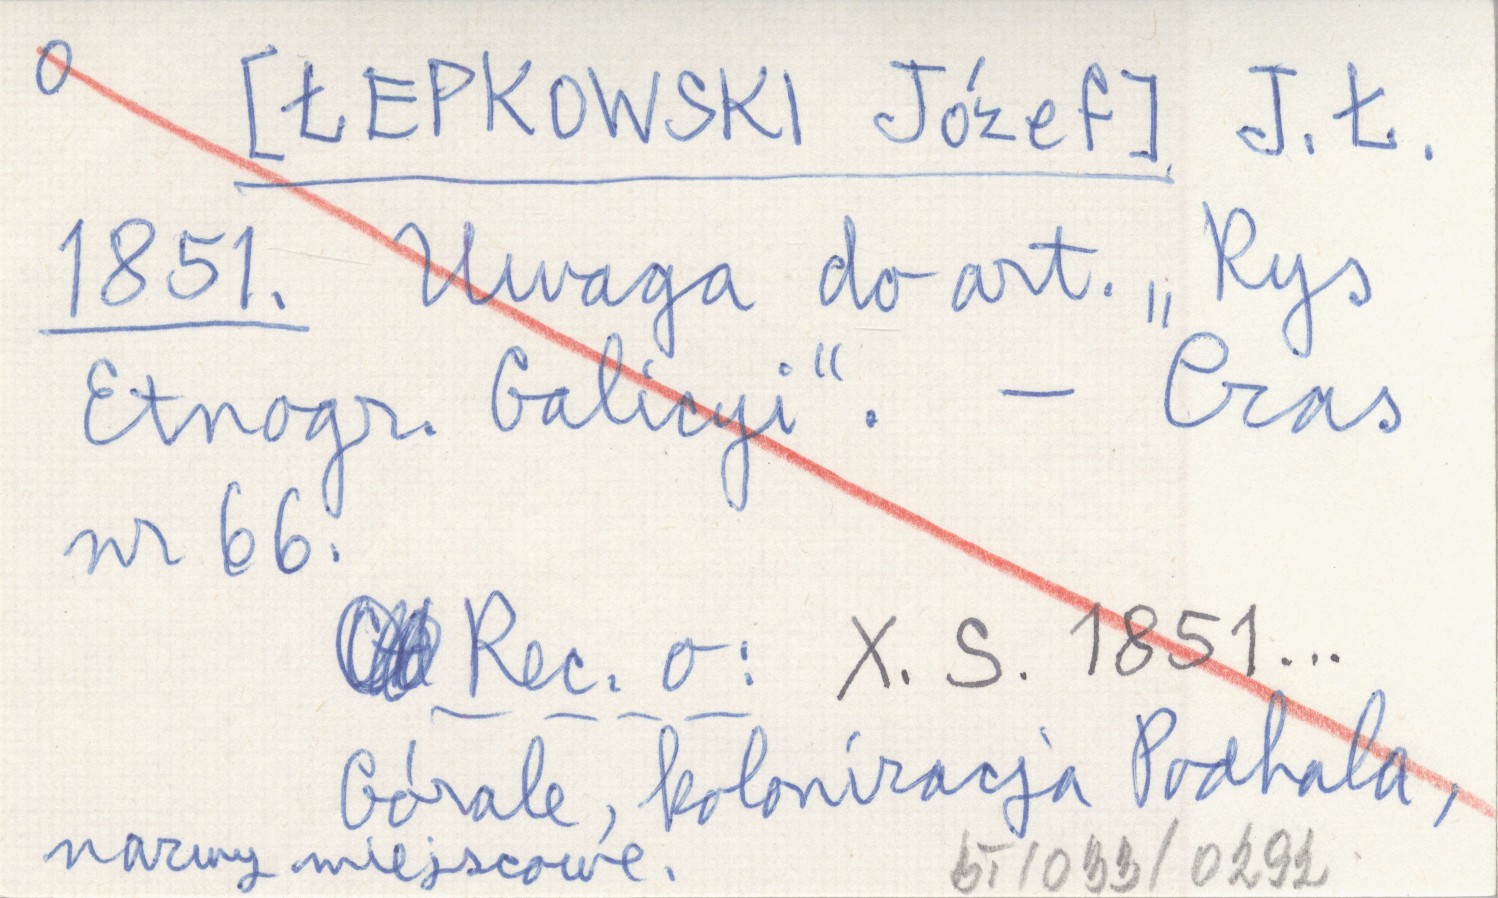 0 [ŁEPKOWSKI Józef] J. Ł.
1851. Uwaga do art. „Rys
Etnogr. Galicyi“. — Czas
nr 66.
Rec. o: X. S. 1851...
Górale, kolonizacja Podhala,
nazwy miejscowe.
/033/0292